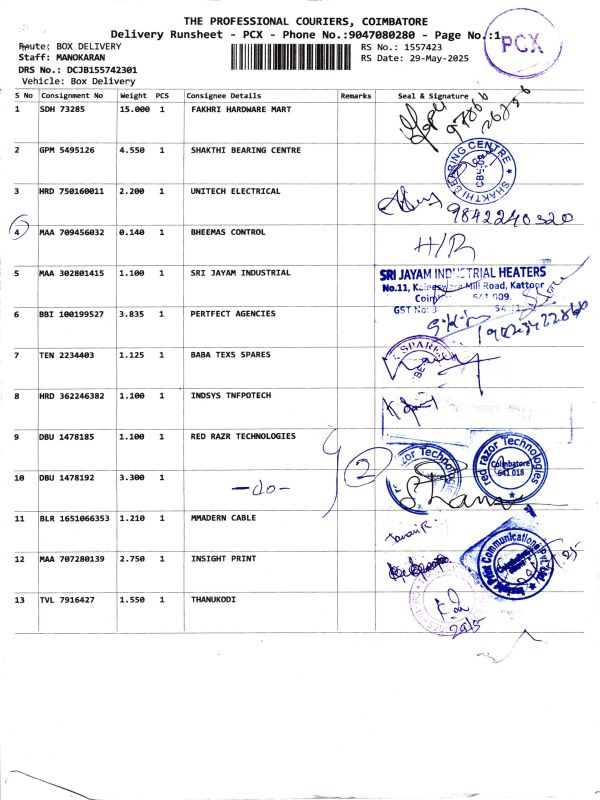 THE PROFESSIONAL COURIERS, COIMBATORE
Delivery Runsheet - PCX - Phone No.:9047080280 - Page No.:1
PCX
Route: BOX DELIVERY
RS No.: 1557423
Staff: MANOKARAN
RS Date: 29-May-2025
DRS No.: DCJB155742301
Vehicle: Box Delivery
S No Consignment No Weight PCS Consignee Details Remarks Seal & Signature
1 SDH 73285 15.000 1 FAKHRI HARDWARE MART
2 GPM 5495126 4.550 1 SHAKTHI BEARING CENTRE
SHAKTHI BEARING CENTRE
3 HRD 750160011 2.200 1 UNITECH ELECTRICAL
9842240320
4 MAA 709456032 0.140 1 BHEEMAS CONTROL
H/R
5 MAA 302801415 1.100 1 SRI JAYAM INDUSTRIAL
SRI JAYAM INDUSTRIAL HEATERS
No.11, Kaleeswara Mill Road, Kattoor
641 009.
GST No:
6 BBI 100199527 3.835 1 PERTFECT AGENCIES
7 TEN 2234403 1.125 1 BABA TEXS SPARES
8 HRD 362246382 1.100 1 INDSYS TNFPOTECH
9 DBU 1478185 1.100 1 RED RAZR TECHNOLOGIES
2
red razor Technologies
Coimbatore
641 018
10 DBU 1478192 3.300 1 -do-
11 BLR 1651066353 1.210 1 MMADERN CABLE
12 MAA 707280139 2.750 1 INSIGHT PRINT
Insight Print Communications Pvt Ltd.
13 TVL 7916427 1.550 1 THANUKODI
29/5